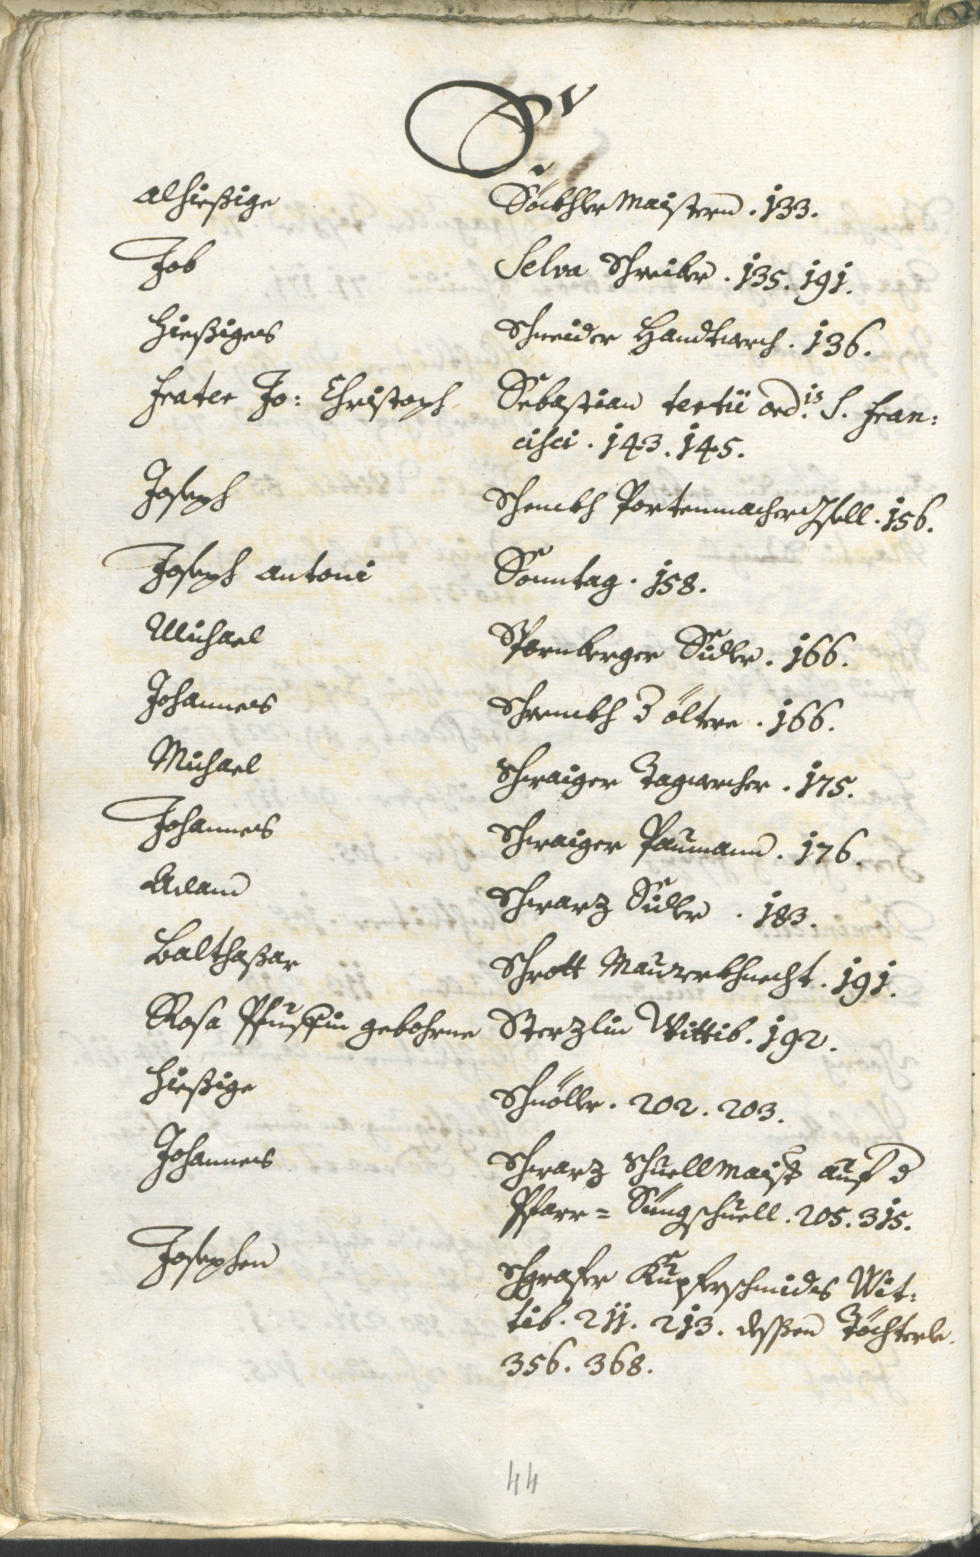 S
alhießige Söckhlermaistern . 133.
Job Selva Schreiber . 135. 191.
hießiges Schneider Handtwerch . 136.
frater Jo: Christoph Sebastian tertii ord:is S. Fran:
cisci . 143. 145.
Joseph Schenckh Portenmacher Gsell . 156.
Joseph Antoni Sonntag . 158.
Michael Spornberger Sidler . 166.
Johannes Schrenckh d öltere . 166.
Michael Schwaiger Tagwercher . 175.
Johannes Schwaiger Paumann . 176.
Adam Schwarz Sidler . 183.
Balthaßar Schrott Maurerkhnecht . 191.
Rosa gebohrne Sterzlin Wittib . 192.
hießige Schuöller . 202. 203.
Johannes Schwarz Schuellmaistr auf d
Pfarr= Singschuell . 205. 315.
Josephen Schgrafer Kupferschmids Wit:
tib . 211. 213. deßen Töchterle .
356. 368.
44